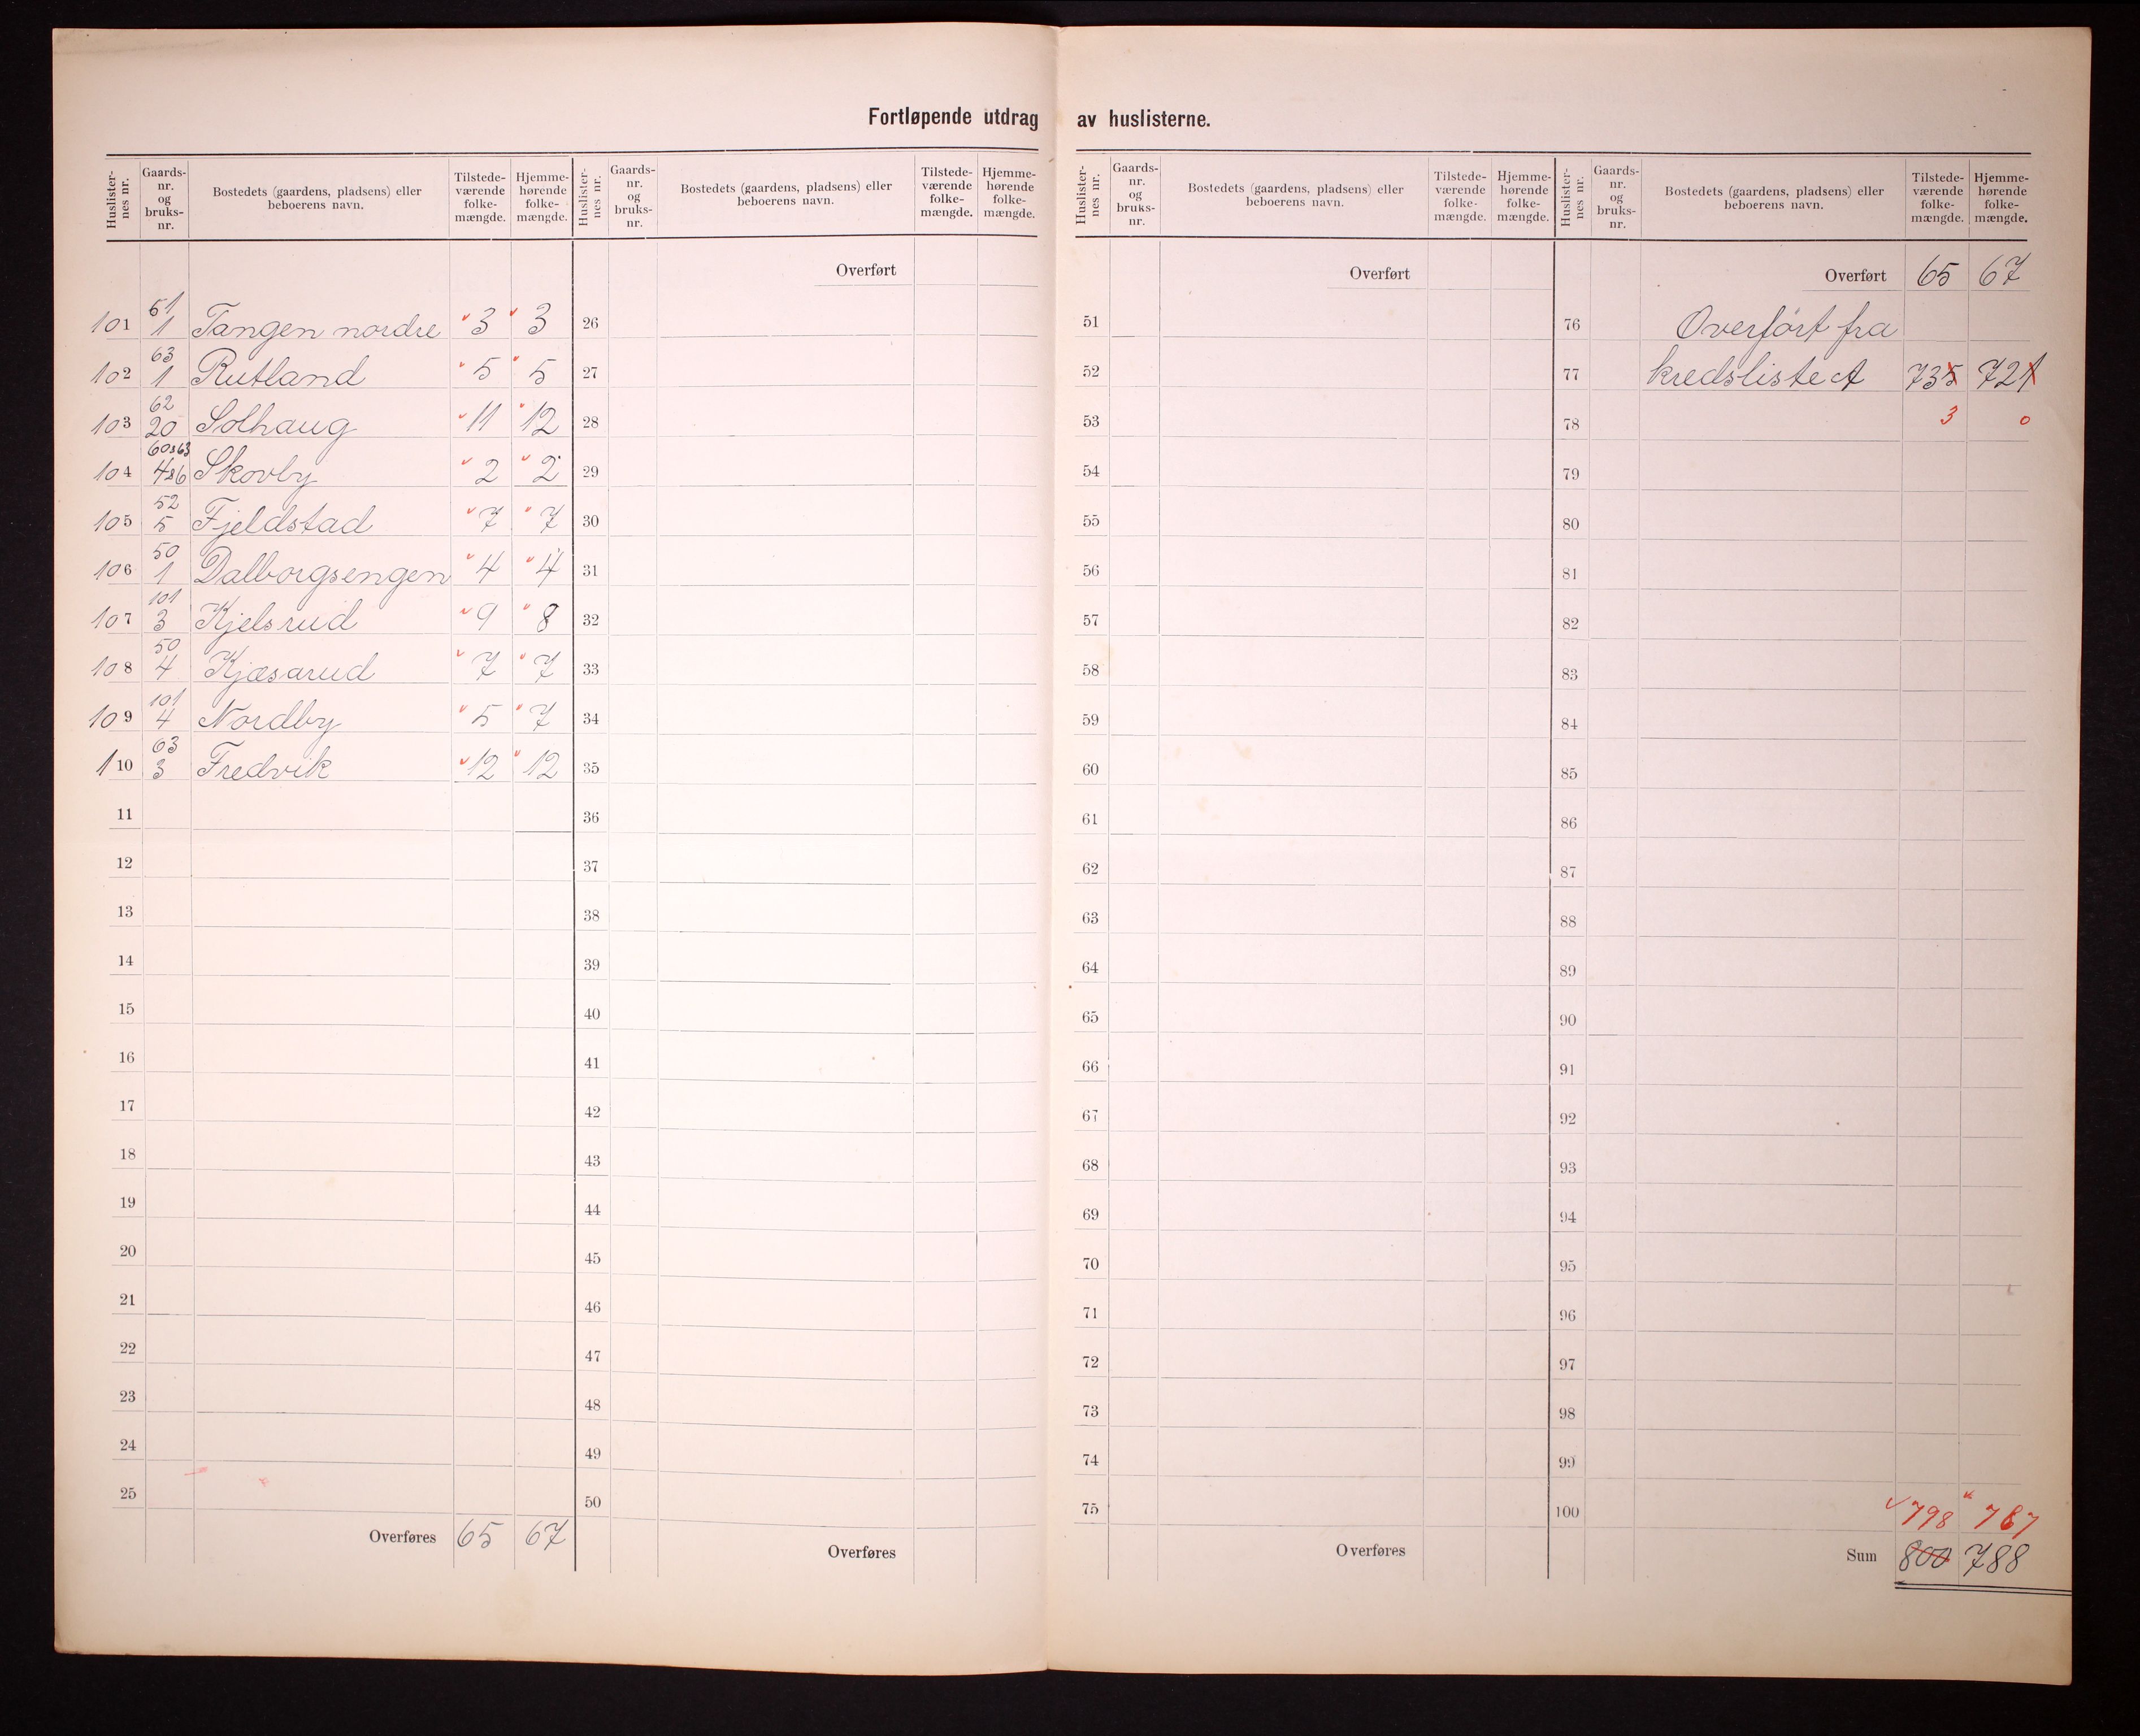 Fortløpende utdrag av huslisterne.
Huslisternes nr. Gaards-nr. og bruks-nr. Bostedets (gaardens, pladsens) eller beboerens navn. Tilstede-værende folke-mængde. Hjemme-hørende folke-mængde.
101 61/1 Tangen nordre 3 3
102 63/1 Rutland 5 5
103 62/20 Solhaug 11 12
104 60&63/4&6 Skovby 2 2
105 52/5 Fjeldstad 7 7
106 50/1 Dalborgsengen 4 4
107 101/3 Kjelsrud 9 8
108 50/4 Kjæsarud 7 7
109 101/4 Nordby 5 7
110 63/3 Fredvik 12 12
11
12
13
14
15
16
17
18
19
20
21
22
23
24
25
Overføres 65 67
Huslisternes nr. Gaards-nr. og bruks-nr. Bostedets (gaardens, pladsens) eller beboerens navn. Tilstede-værende folke-mængde. Hjemme-hørende folke-mængde.
Overført
26
27
28
29
30
31
32
33
34
35
36
37
38
39
40
41
42
43
44
45
46
47
48
49
50
Overføres
Huslisternes nr. Gaards-nr. og bruks-nr. Bostedets (gaardens, pladsens) eller beboerens navn. Tilstede-værende folke-mængde. Hjemme-hørende folke-mængde.
Overført
51
52
53
54
55
56
57
58
59
60
61
62
63
64
65
66
67
68
69
70
71
72
73
74
75
Overføres
Huslisternes nr. Gaards-nr. og bruks-nr. Bostedets (gaardens, pladsens) eller beboerens navn. Tilstede-værende folke-mængde. Hjemme-hørende folke-mængde.
Overført 65 67
76 Overført fra
77 kredsliste A 735 721
78 3 0
79
80
81
82
83
84
85
86
87
88
89
90
91
92
93
94
95
96
97
98
99
100 798 787
Sum 800 788